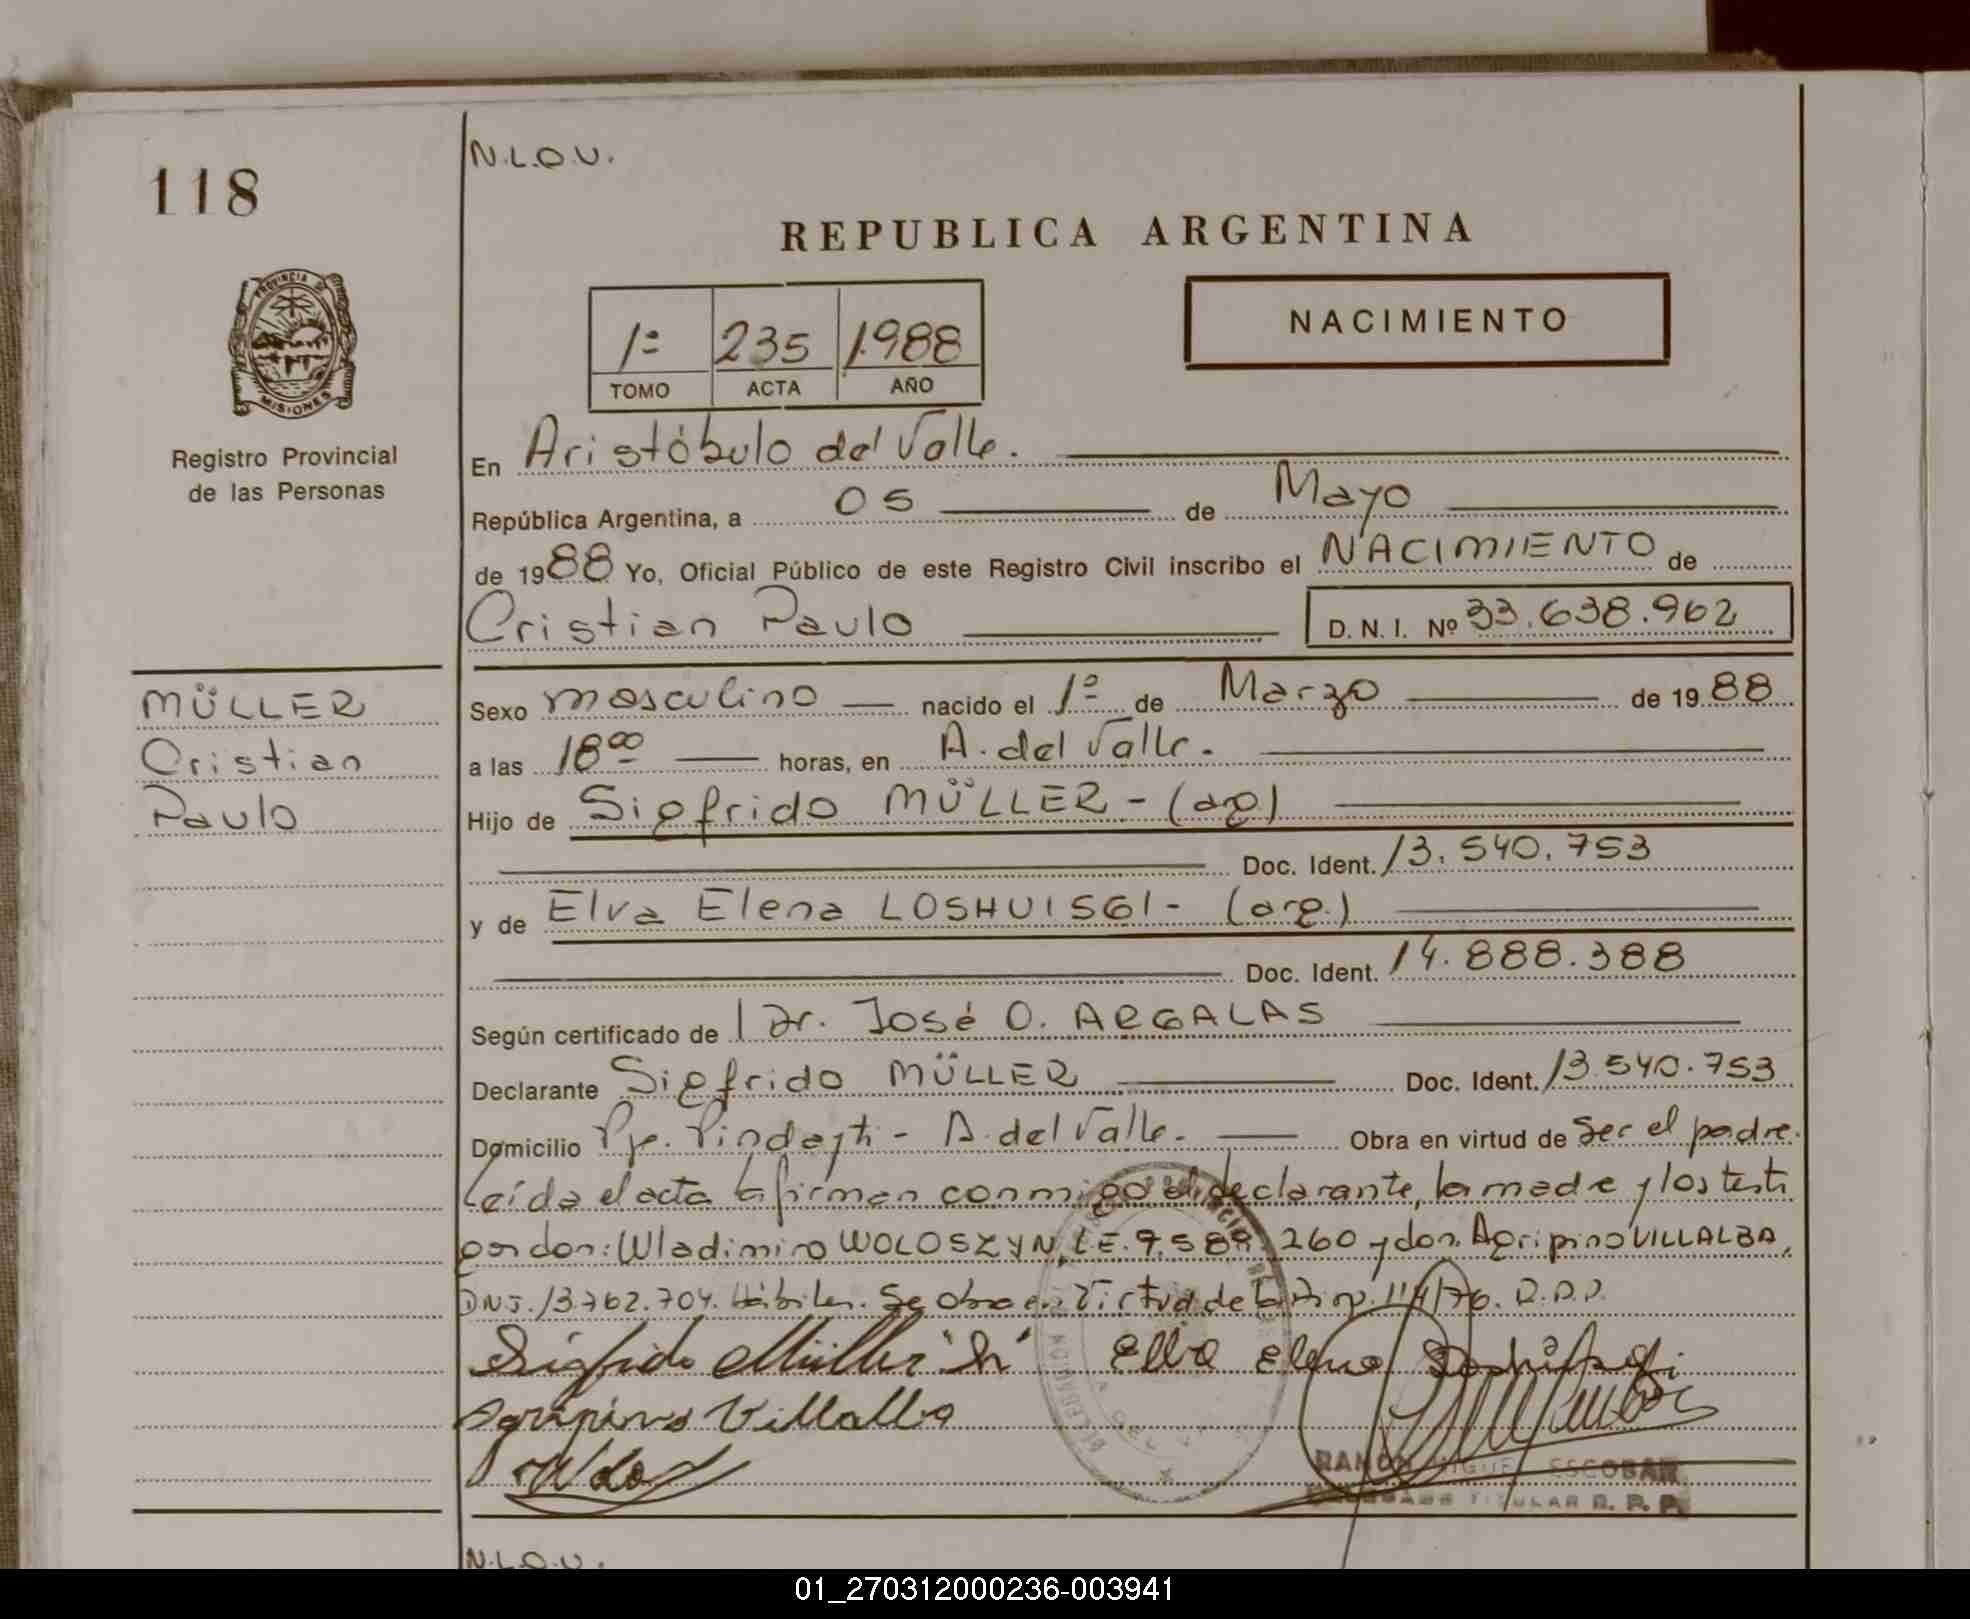 118
N.L.O.V.
REPUBLICA ARGENTINA
1º 235 1.988
TOMO ACTA AÑO
NACIMIENTO
PROVINCIA DE
MISIONES
Registro Provincial
de las Personas
En Aristóbulo del Valle.
República Argentina, a 05 de Mayo
de 1988 Yo, Oficial Público de este Registro Civil inscribo el NACIMIENTO de
Cristian Paulo D. N. I. Nº 33.638.962
MÜLLER
Cristian
Paulo
Sexo masculino nacido el 1º de Marzo de 1988
a las 18ºº horas, en A. del Valle.
Hijo de Sigfrido MÜLLER - (arg)
Doc. Ident. 13.540.753
y de Elva Elena LOSHUISGI - (arg.)
Doc. Ident. 14.888.388
Según certificado de Dr. José O. ARGALAS
Declarante Sigfrido MÜLLER Doc. Ident. 13.540.753
Domicilio Pje. Pindayti - A. del Valle. Obra en virtud de ser el padre.
Leída el acta la firman conmigo el declarante, la madre y los testi
gos don: Wladimiro WOLOSZYN, L.E. 7.589.260 y don Agripino VILLALBA,
DNI. 13.762.704. Hábiles. Se obra en virtud de la 114/76. R.P.P.
Sigfrido Müller "h" Elva Elena
Agripino Villalba
RAMON MIGUEL ESCOBAR
DELEGADO TITULAR R. P. P.
N.L.O.V.
01_270312000236-003941